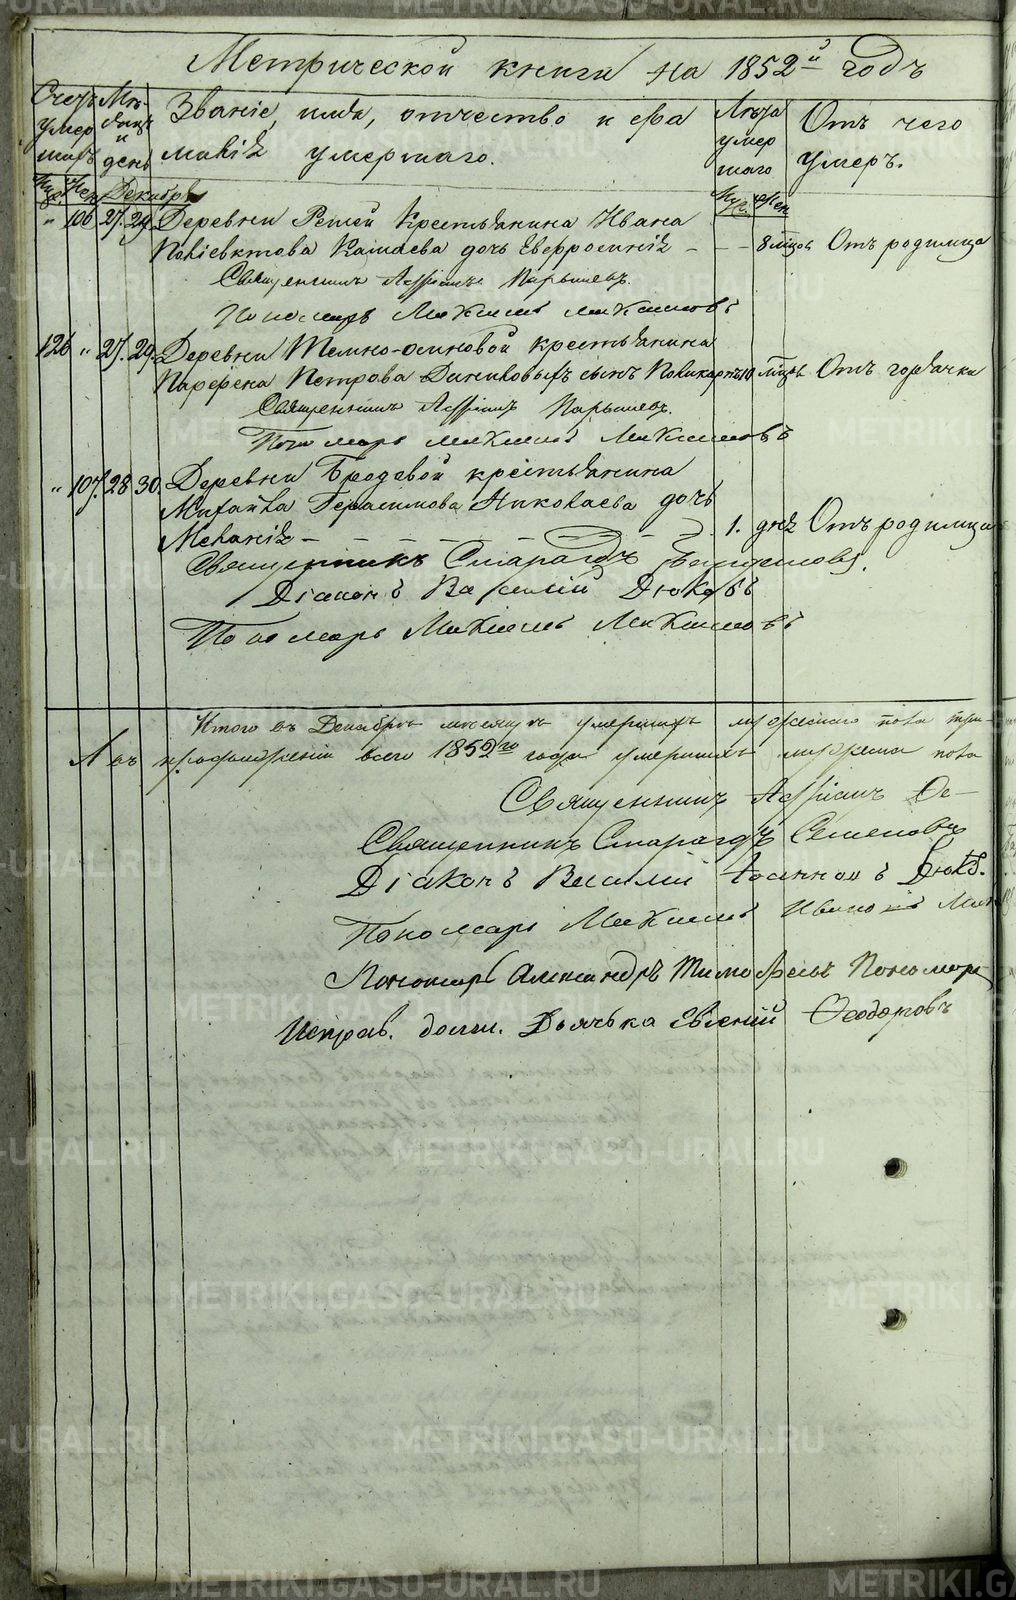 Метрической книги на 1852й годъ
Счетъ умершихъ
Мѣсяцъ и день
Званіе, имя, отчество и фамилія умершаго.
Лѣта умершаго
Отъ чего умеръ.
Муж. Жен. Декабрь
Муж. Жен.
" 106 27. 29. Деревни Решей Крестьянина Ивана
Поліевктова дочь Евфросинія - - - 8 мѣсяц. Отъ родимца
Священникъ Адріанъ Парышевъ.
Пономарь Максимъ Максимовъ
126 " 27. 29. Деревни Темно-осиновой крестьянина
Парфена Петрова сынъ Поликарпъ 10 мѣсяц. Отъ горячки
Священникъ Адріанъ Парышевъ.
Пономарь Максимъ Максимовъ
" 107. 28 30. Деревни Бродовой крестьянина
Михайла Герасимова Николаева дочь
Меланія - - - - - - - 1. дня Отъ родимца
Священникъ Смарагдъ
Діаконъ Василій Дюковъ
Пономарь Максимъ Максимовъ
Итого въ Декабрѣ мѣсяцѣ умершихъ мужескаго пола три-
А въ продолженіи всего 1852го года умершихъ мужеска пола
Священникъ Адріанъ
Священникъ Смарагдъ Семеновъ
Діаконъ Василій Іоанновъ Дюков.
Пономарь Максимъ Ивановъ
Пономарь Александръ Тимофеевъ Пономарь
Исправ. долж. Дьячька Евгеній Ѳеодоровъ
METRIKI.GASO-URAL.RU